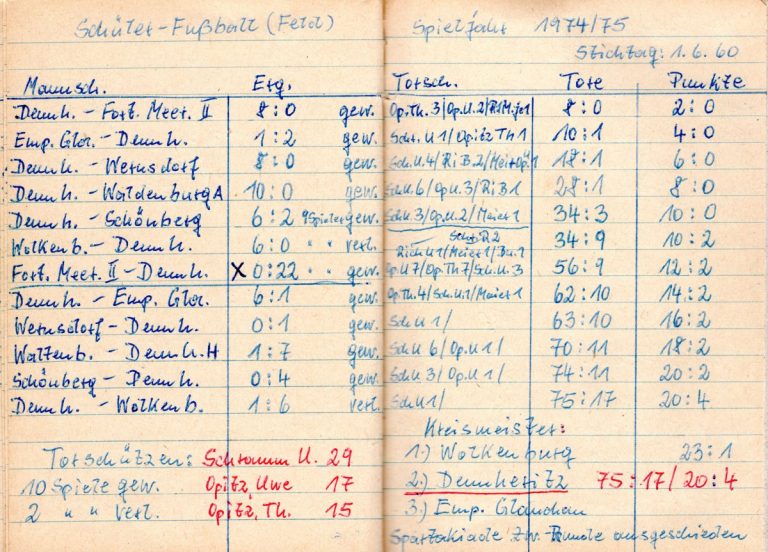 Schüler-Fußball (Feld)
Mannsch. Erg.
Dennh. - Fort. Meer. II 8:0 gew.
Emp. Glau. - Dennh. 1:2 gew.
Dennh. - Wernsdorf 8:0 gew.
Dennh. - Waldenburg A 10:0 gew.
Dennh. - Schönberg 6:2 9 Spieler gew.
Wolkenb. - Dennh. 6:0 " " verl.
Fort. Meer. II - Dennh. X 0:22 " " gew.
Dennh. - Emp. Glau. 6:1 gew.
Wernsdorf - Dennh. 0:1 gew.
Dennh. H 1:7 gew.
Schönberg - Dennh. 0:4 gew.
Dennh. - Wolkenb. 1:6 verl.
Torschützen: Schramm U. 29
10 Spiele gew. Opitz, Uwe 17
2 " " verl. Opitz, Th. 15
Spieljahr 1974/75
Stichtag: 1.6.60
Torsch. Tore Punkte
Op.Th. 3/Op.U.2/ 8:0 2:0
Sch. U 1/Opitz Th 1 10:1 4:0
Sch.U.4/Ri B.2/ 18:1 6:0
Sch.U.6/Op.U.3/Ri B 1 28:1 8:0
Sch.U.3/Op.U.2/Meier 1 34:3 10:0
34:9 10:2
Op.U 7/Op.Th 7/Sch.U.3 56:9 12:2
Op.Th.4/Sch.U.1/Meier 1 62:10 14:2
Sch U 1/ 63:10 16:2
Sch U 6/Op.U 1/ 70:11 18:2
Sch U 3/Op.U 1/ 74:11 20:2
Sch U 1/ 75:17 20:4
Kreismeister:
1.) Wolkenburg 23:1
2.) Dennheritz 75:17/20:4
3.) Emp. Glauchau
Spartakiade zw. Runde ausgeschieden